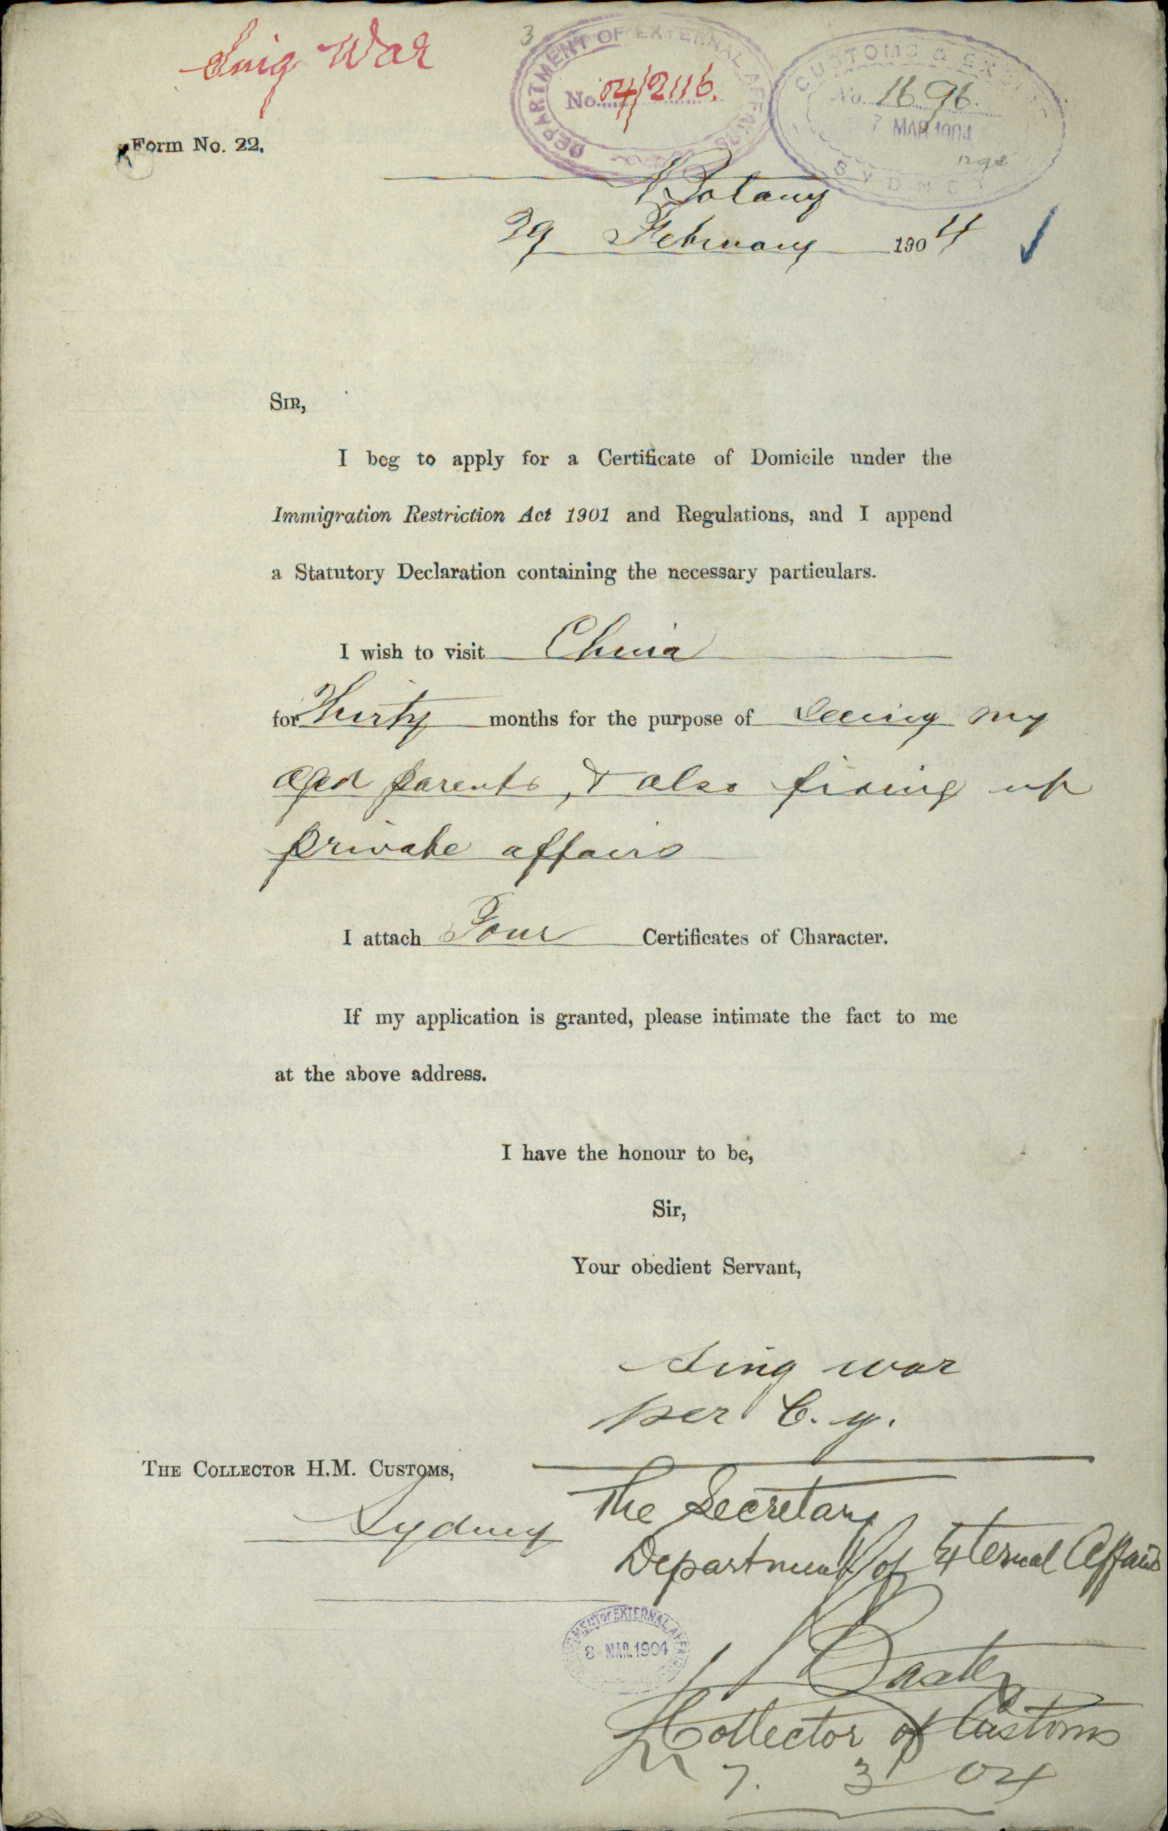 Sing War
3
DEPARTMENT OF EXTERNAL AFFAIRS
No. 04/2116.
CUSTOMS & EXCISE
No. 1696.
7 MAR 1904
SYDNEY
Form No. 22.
Botany
29 February 1904
SIR,
I beg to apply for a Certificate of Domicile under the
Immigration Restriction Act 1901 and Regulations, and I append
a Statutory Declaration containing the necessary particulars.
I wish to visit China
for Thirty months for the purpose of seeing my
aged parents, & also fixing up
private affairs
I attach Four Certificates of Character.
If my application is granted, please intimate the fact to me
at the above address.
I have the honour to be,
Sir,
Your obedient Servant,
Sing war
per C. y.
THE COLLECTOR H.M. CUSTOMS,
Sydney
The Secretary
Department of External Affairs
DEPARTMENT OF EXTERNAL AFFAIRS
8 MAR. 1904
Baxter
Collector of Customs
7. 3 04